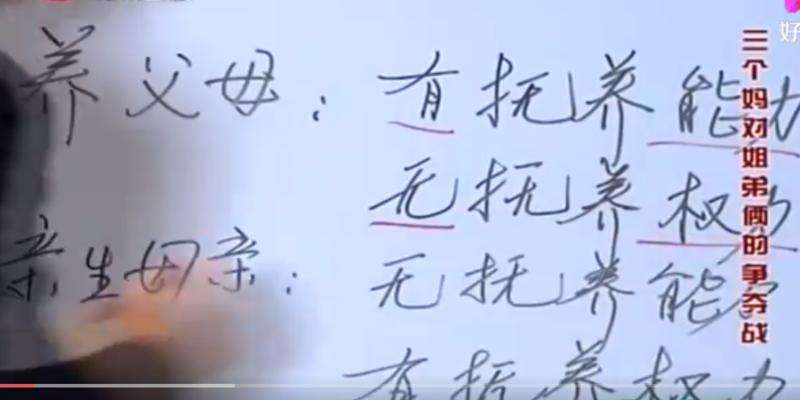 养父母：有抚养能力
无抚养权力
亲生母亲：无抚养能力
有抚养权力
三个妈对姐弟俩的争夺战
好